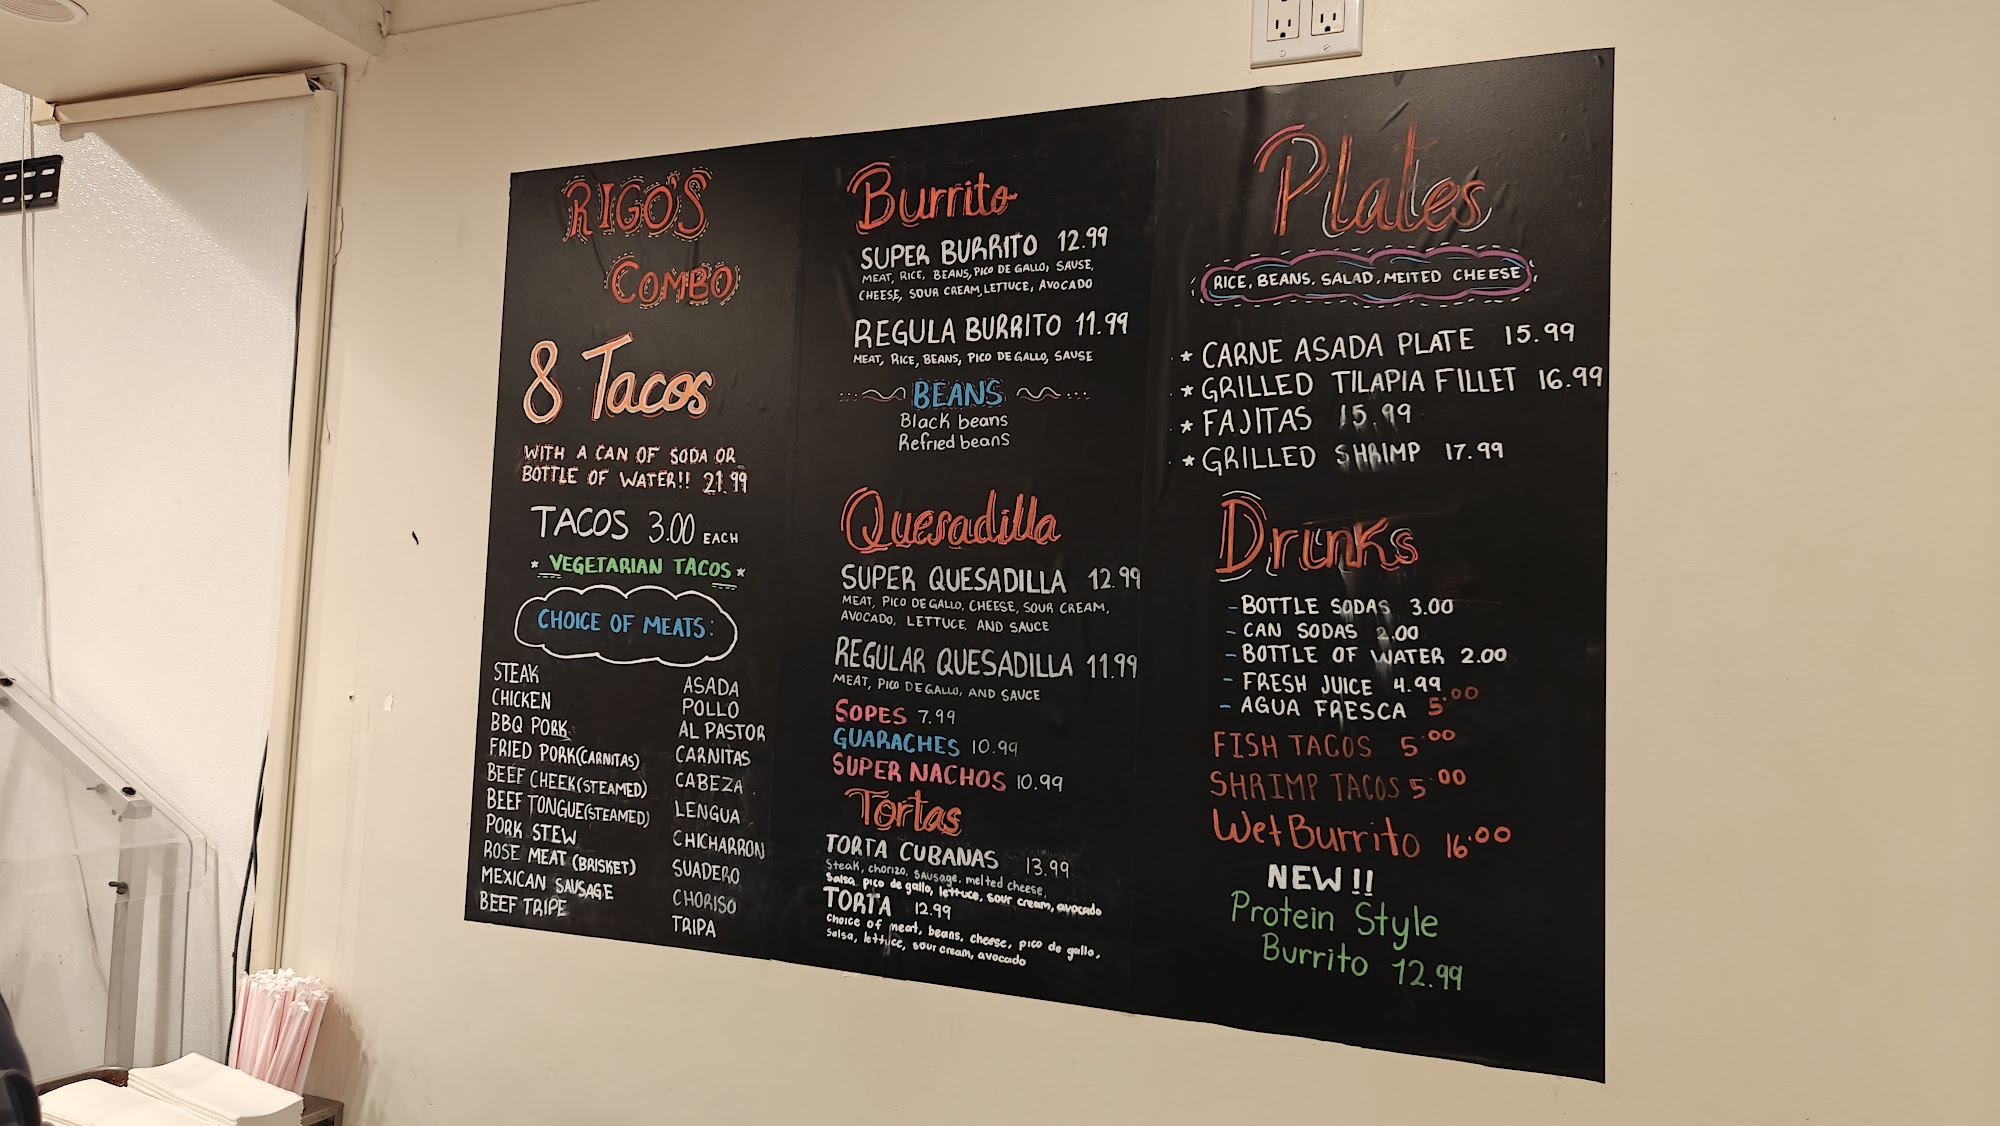 RIGO'S
COMBO
8 Tacos
WITH A CAN OF SODA OR
BOTTLE OF WATER!! 21.99
TACOS 3.00 EACH
* VEGETARIAN TACOS *
CHOICE OF MEATS:
STEAK ASADA
CHICKEN POLLO
BBQ PORK AL PASTOR
FRIED PORK(CARNITAS) CARNITAS
BEEF CHEEK(STEAMED) CABEZA
BEEF TONGUE(STEAMED) LENGUA
PORK STEW CHICHARRON
ROSE MEAT (BRISKET) SUADERO
MEXICAN SAUSAGE CHORISO
BEEF TRIPE TRIPA
Burrito
SUPER BURRITO 12.99
MEAT, RICE, BEANS, PICO DE GALLO, SAUSE,
CHEESE, SOUR CREAM, LETTUCE, AVOCADO
REGULA BURRITO 11.99
MEAT, RICE, BEANS, PICO DE GALLO, SAUSE
BEANS
Black beans
Refried beans
Quesadilla
SUPER QUESADILLA 12.99
MEAT, PICO DE GALLO, CHEESE, SOUR CREAM,
AVOCADO, LETTUCE, AND SAUCE
REGULAR QUESADILLA 11.99
MEAT, PICO DE GALLO, AND SAUCE
SOPES 7.99
GUARACHES 10.99
SUPER NACHOS 10.99
Tortas
TORTA CUBANAS 13.99
Steak, chorizo, sausage, melted cheese,
Salsa, pico de gallo, lettuce, sour cream, avocado
TORTA 12.99
Choice of meat, beans, cheese, pico de gallo,
Salsa, lettuce, sour cream, avocado
Plates
RICE, BEANS, SALAD, MELTED CHEESE
* CARNE ASADA PLATE 15.99
* GRILLED TILAPIA FILLET 16.99
* FAJITAS 15.99
* GRILLED SHRIMP 17.99
Drinks
- BOTTLE SODAS 3.00
- CAN SODAS 2.00
- BOTTLE OF WATER 2.00
- FRESH JUICE 4.99
- AGUA FRESCA 5.00
FISH TACOS 5.00
SHRIMP TACOS 5.00
Wet Burrito 16.00
NEW!!
Protein Style
Burrito 12.99